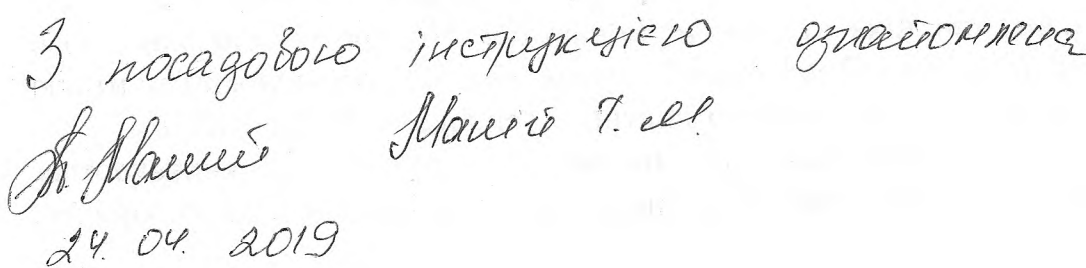 З посадовою інструкцією ознайомлена
Малій Т. М.
24. 04. 2019